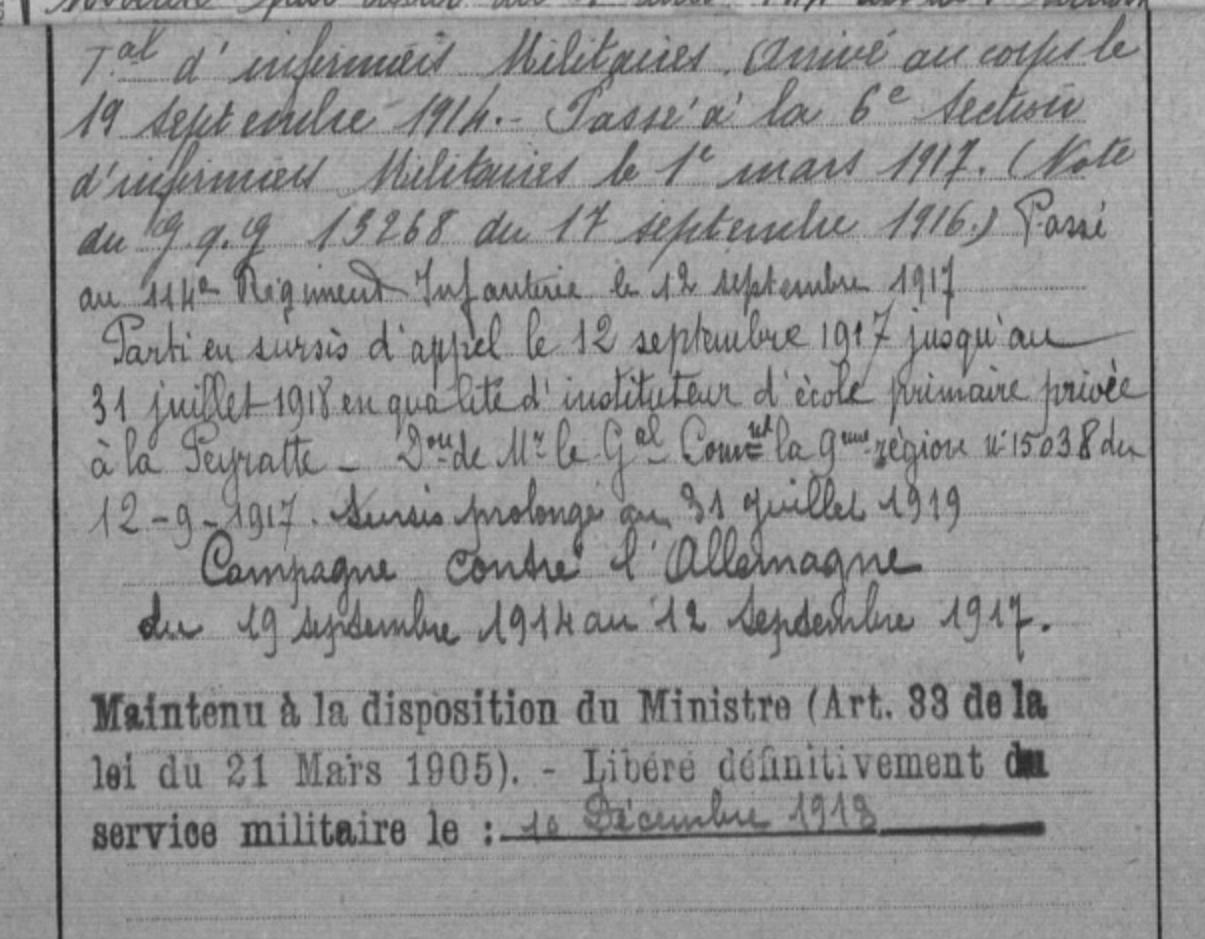 Tal d'infirmiers Militaires. Arrivé au corps le
19 septembre 1914.- Passé à la 6e Section
d'infirmiers Militaires le 1e mars 1917. (Note
du G.Q.G 13268 du 17 septembre 1916.) Passé
au 114e Régiment Infanterie le 12 septembre 1917
Parti en sursis d'appel le 12 septembre 1917 jusqu'au
31 juillet 1918 en qualité d'instituteur d'école primaire privée
à la Peyratte - Don de Mr le Gal Comdt la 9eme région n° 15038 du
12-9-1917. Sursis prolongé au 31 juillet 1919
Campagne contre l'Allemagne
du 19 septembre 1914 au 12 Septembre 1917.
Maintenu à la disposition du Ministre (Art. 33 de la
lei du 21 Mars 1905). - Libéré définitivement du
service militaire le : 10 Décembre 1918